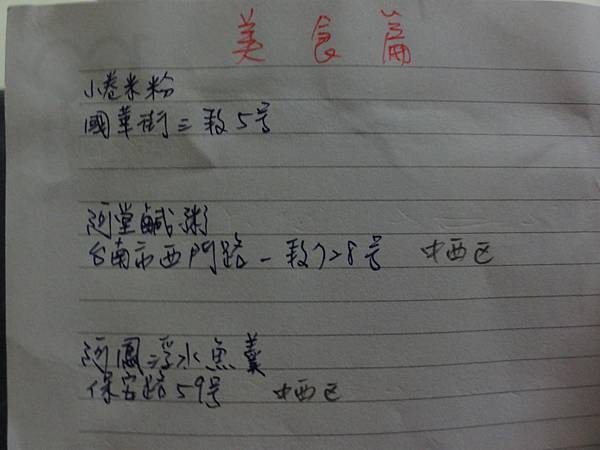 美食篇
小卷米粉
國華街三段5号
阿堂鹹粥
台南市西門路一段728号 中西区
阿鳳浮水魚羹
保安路59号 中西区